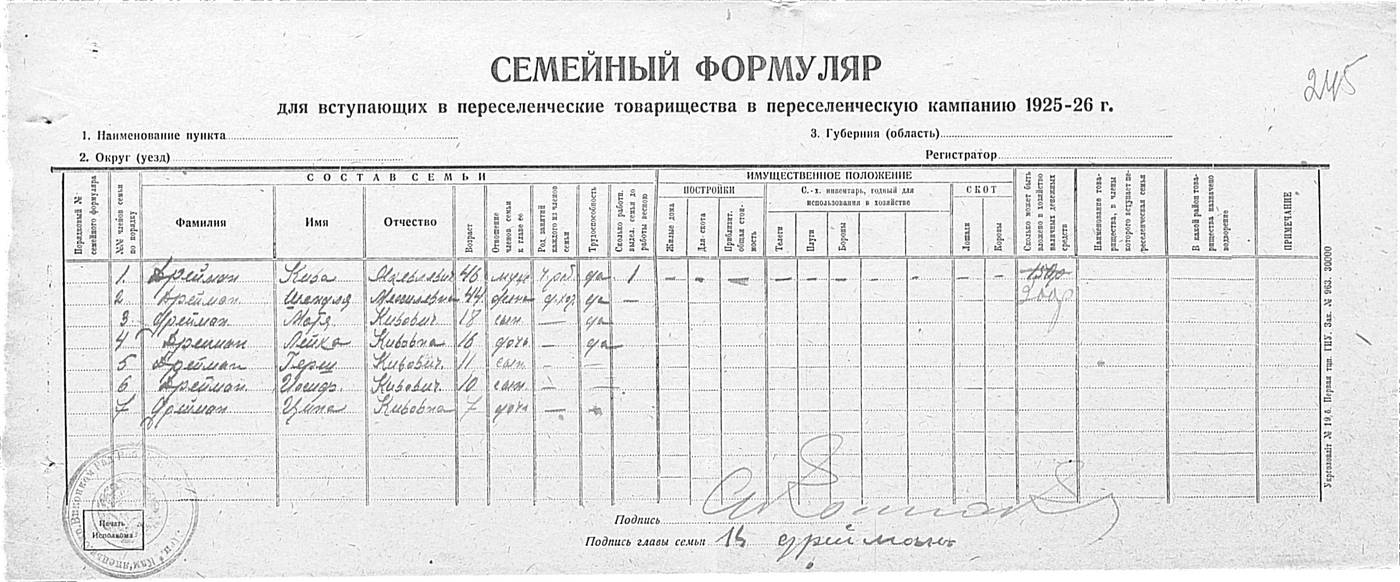 СЕМЕЙНЫЙ ФОРМУЛЯР
245
для вступающих в переселенческие товарищества в переселенческую кампанию 1925-26 г.
1. Наименование пункта
3. Губерния (область)
2. Округ (уезд)
Регистратор
СОСТАВ СЕМЬИ
ИМУЩЕСТВЕННОЕ ПОЛОЖЕНИЕ
Порядковый № семейного формуляра
№№ членов семьи по порядку
Фамилия
Имя
Отчество
Возраст
Отношение членов семьи к главе ее
Род занятий каждого из членов семьи
Трудоспособность
Сколько работн. выдел. семья до работы весною
ПОСТРОЙКИ
Жилые дома
Для скота
Приблизит. общая стоимость
С.-х. инвентарь, годный для использования в хозяйстве
Телеги
Плуги
Бороны
СКОТ
Лошади
Коровы
Сколько может быть вложено в хозяйство наличных денежных средств
Наименование товарищества, в члены которого вступает переселенческая семья
В какой район товарищества назначено водворение
ПРИМЕЧАНИЕ
1. Фрейман Кива 46 муж да 1 — — — — — — — —
2 Фрейман 44 жена да — 200р
3 Фрейман Мотя Кивович 18 сын — да
4 Фрейман Лейка Кивовна 16 дочь — да
5 Фрейман Герш Кивович. 11 сын — —
6 Фрейман Иосиф. Кивович. 10 сын — —
7 Фрейман Ципа Кивовна 7 дочь —
Печать Исполкома
Подпись
Подпись главы семьи Фрейман
Укрголовліт № 19,б. Первая тип. ГИУ. Зак. № 963. 30000